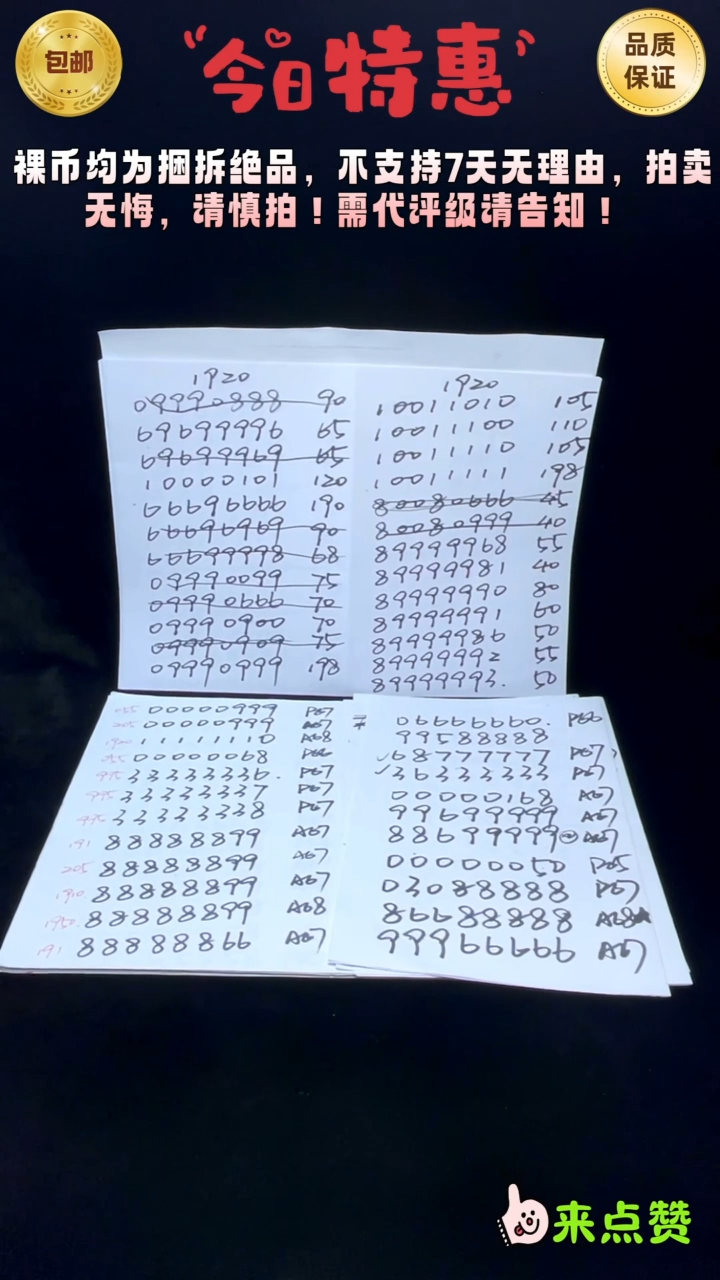 包邮
“今日特惠”
品质
保证
裸币均为捆拆绝品，不支持7天无理由，拍卖
无悔，请慎拍！需代评级请告知！
1920
09990888 90
69699996 65
69699969 65
10000101 120
66696666 190
66696969 90
66699998 68
09990099 75
09990666 70
09990900 70
09990909 75
09990999 198
1920
10011010 105
10011100 110
10011110 105
10011111 198
80080666 45
80080999 40
89999968 55
89999981 40
89999990 80
89999991 60
89999986 50
89999992 55
89999993. 50
055 00000999 P67
205 00000999 A67
1920 11111110 A68
055 00000068 P66
995 33333336. P67
995 33333337 P67
995 33333338 P67
191 88888899 A67
205 88888899 A67
1910 88888899 A67
1950 88888899 A68
191 88888866 A67
06666660. P66
99588888
68777777 P67
36333333 P67
00000168 A67
99699999 A67
88699999 A67
00000050 P65
03088888 P67
86688888 A68
99966666 A67
来点赞